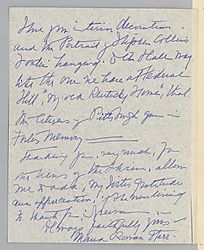 Have your interior decorations
and the Portrait of Stephen Collins
Foster hanging. In the Hall way
like the one we have at Federal
Hill "My Old Kentucky Home", that
the Citizens of Pittsburgh gave in
Foster Memory —
Thanking you, very much, for
the of the Shrine, allow
me to add, My Sister's Gratitude
and appreciation,
to thank you. I remain
Always faithfully yours